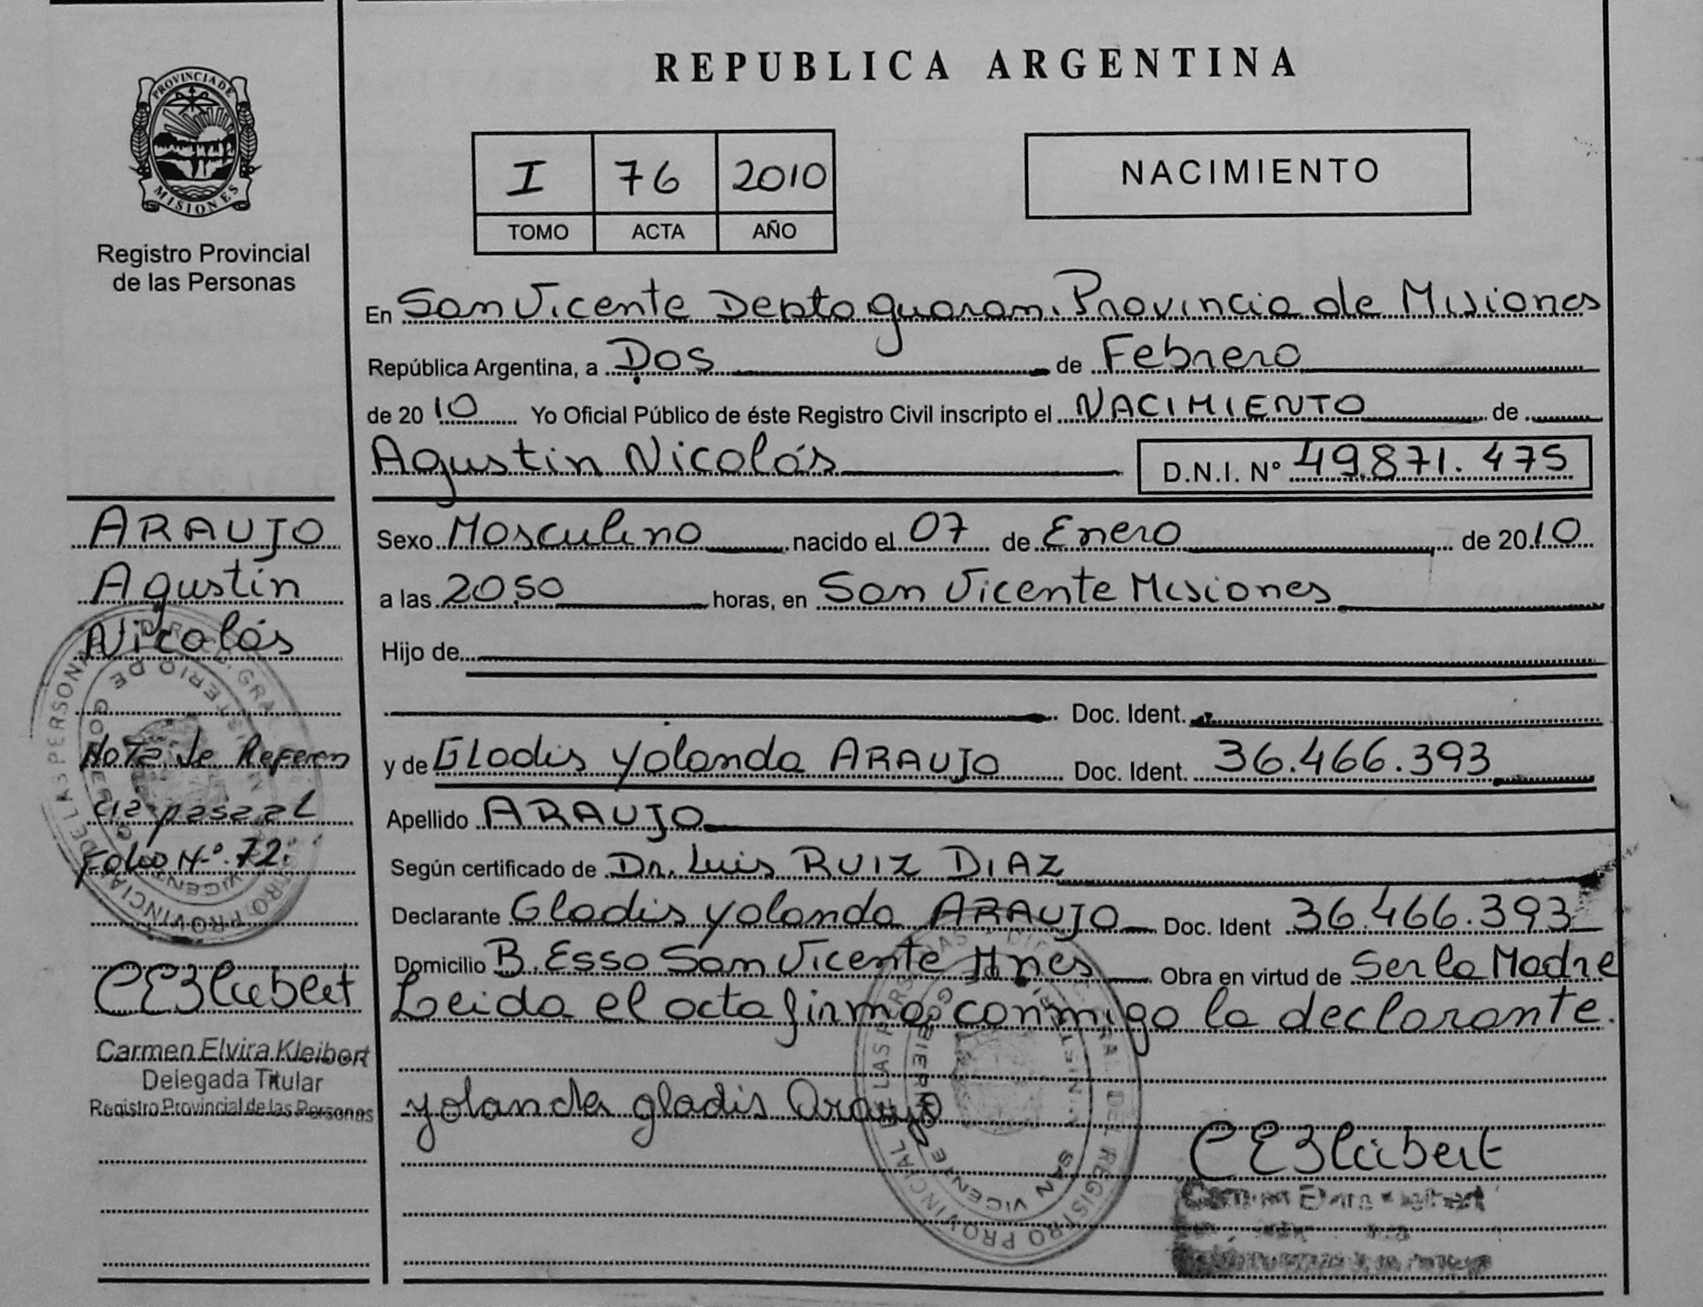 REPUBLICA ARGENTINA
PROVINCIA DE
MISIONES
Registro Provincial
de las Personas
I 76 2010
TOMO ACTA AÑO
NACIMIENTO
En San Vicente Depto Guarani Provincia de Misiones
República Argentina, a Dos de Febrero
de 2010 Yo Oficial Público de éste Registro Civil inscripto el NACIMIENTO de
Agustin Nicolás D.N.I. Nº 49.871.475
Sexo Masculino nacido el 07 de Enero de 2010
a las 20,50 horas, en San Vicente Misiones
Hijo de
Doc. Ident.
y de Gladis Yolanda ARAUJO Doc. Ident. 36.466.393
Apellido ARAUJO
Según certificado de Dr. Luis RUIZ DIAZ
Declarante Gladis Yolanda ARAUJO Doc. Ident 36.466.393
Domicilio B. Esso San Vicente Mnes Obra en virtud de Ser la Madre
Leida el acta firma conmigo la declarante.
yolanda gladis Araujo
ARAUJO
Agustin
Nicolás
Nota de Referen
cia pasa al
Folio Nº 72.
CEKleibert
Carmen Elvira Kleibert
Delegada Titular
Registro Provincial de las Personas
CEKleibert
REGISTRO PROVINCIAL DE LAS PERSONAS
SAN VICENTE